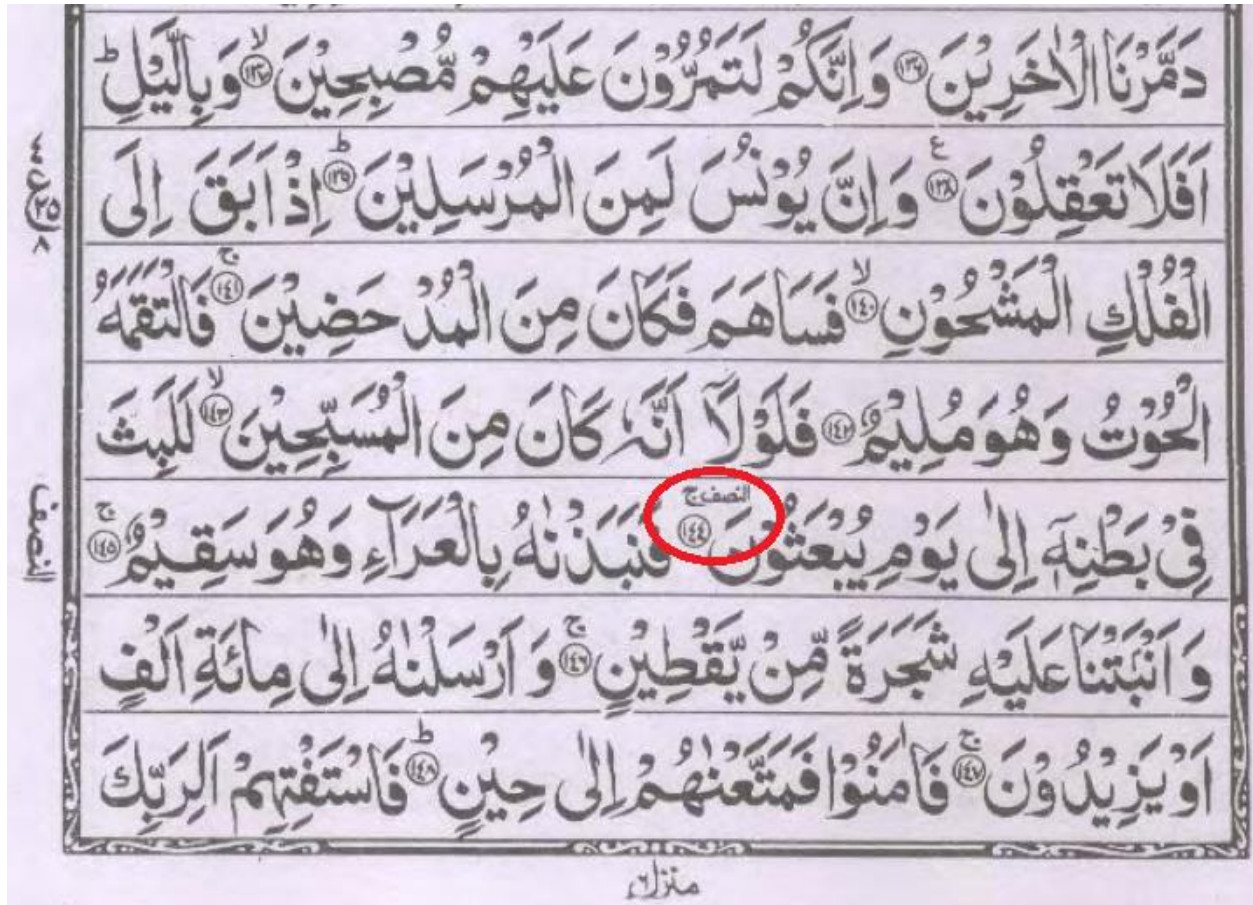 دَمَّرْنَا الْاٰخَرِيْنَ ﴿۱۳۶﴾ وَ اِنَّكُمْ لَتَمُرُّوْنَ عَلَيْهِمْ مُّصْبِحِيْنَ ﴿۱۳۷﴾ۙ وَ بِالَّيْلِ ؕ
اَفَلَا تَعْقِلُوْنَ ﴿۱۳۸﴾ ع وَ اِنَّ يُوْنُسَ لَمِنَ الْمُرْسَلِيْنَ ﴿۱۳۹﴾ؕ اِذْ اَبَقَ اِلَى
الْفُلْكِ الْمَشْحُوْنِ ﴿۱۴۰﴾ۙ فَسَاهَمَ فَكَانَ مِنَ الْمُدْحَضِيْنَ ﴿۱۴۱﴾ۚ فَالْتَقَمَهُ
الْحُوْتُ وَ هُوَ مُلِيْمٌ ﴿۱۴۲﴾ فَلَوْ لَاۤ اَنَّهٗ كَانَ مِنَ الْمُسَبِّحِيْنَ ﴿۱۴۳﴾ۙ لَلَبِثَ
فِيْ بَطْنِهٖۤ اِلٰى يَوْمِ يُبْعَثُوْنَ ﴿۱۴۴﴾ النصف ج فَنَبَذْنٰهُ بِالْعَرَآءِ وَ هُوَ سَقِيْمٌ ﴿۱۴۵﴾ۚ
النصف
وَ اَنْۢبَتْنَا عَلَيْهِ شَجَرَةً مِّنْ يَّقْطِيْنٍ ﴿۱۴۶﴾ۚ وَ اَرْسَلْنٰهُ اِلٰى مِائَةِ اَلْفٍ
اَوْ يَزِيْدُوْنَ ﴿۱۴۷﴾ۚ فَاٰمَنُوْا فَمَتَّعْنٰهُمْ اِلٰى حِيْنٍ ﴿۱۴۸﴾ؕ فَاسْتَفْتِهِمْ اَلِرَبِّكَ
منزل ۶